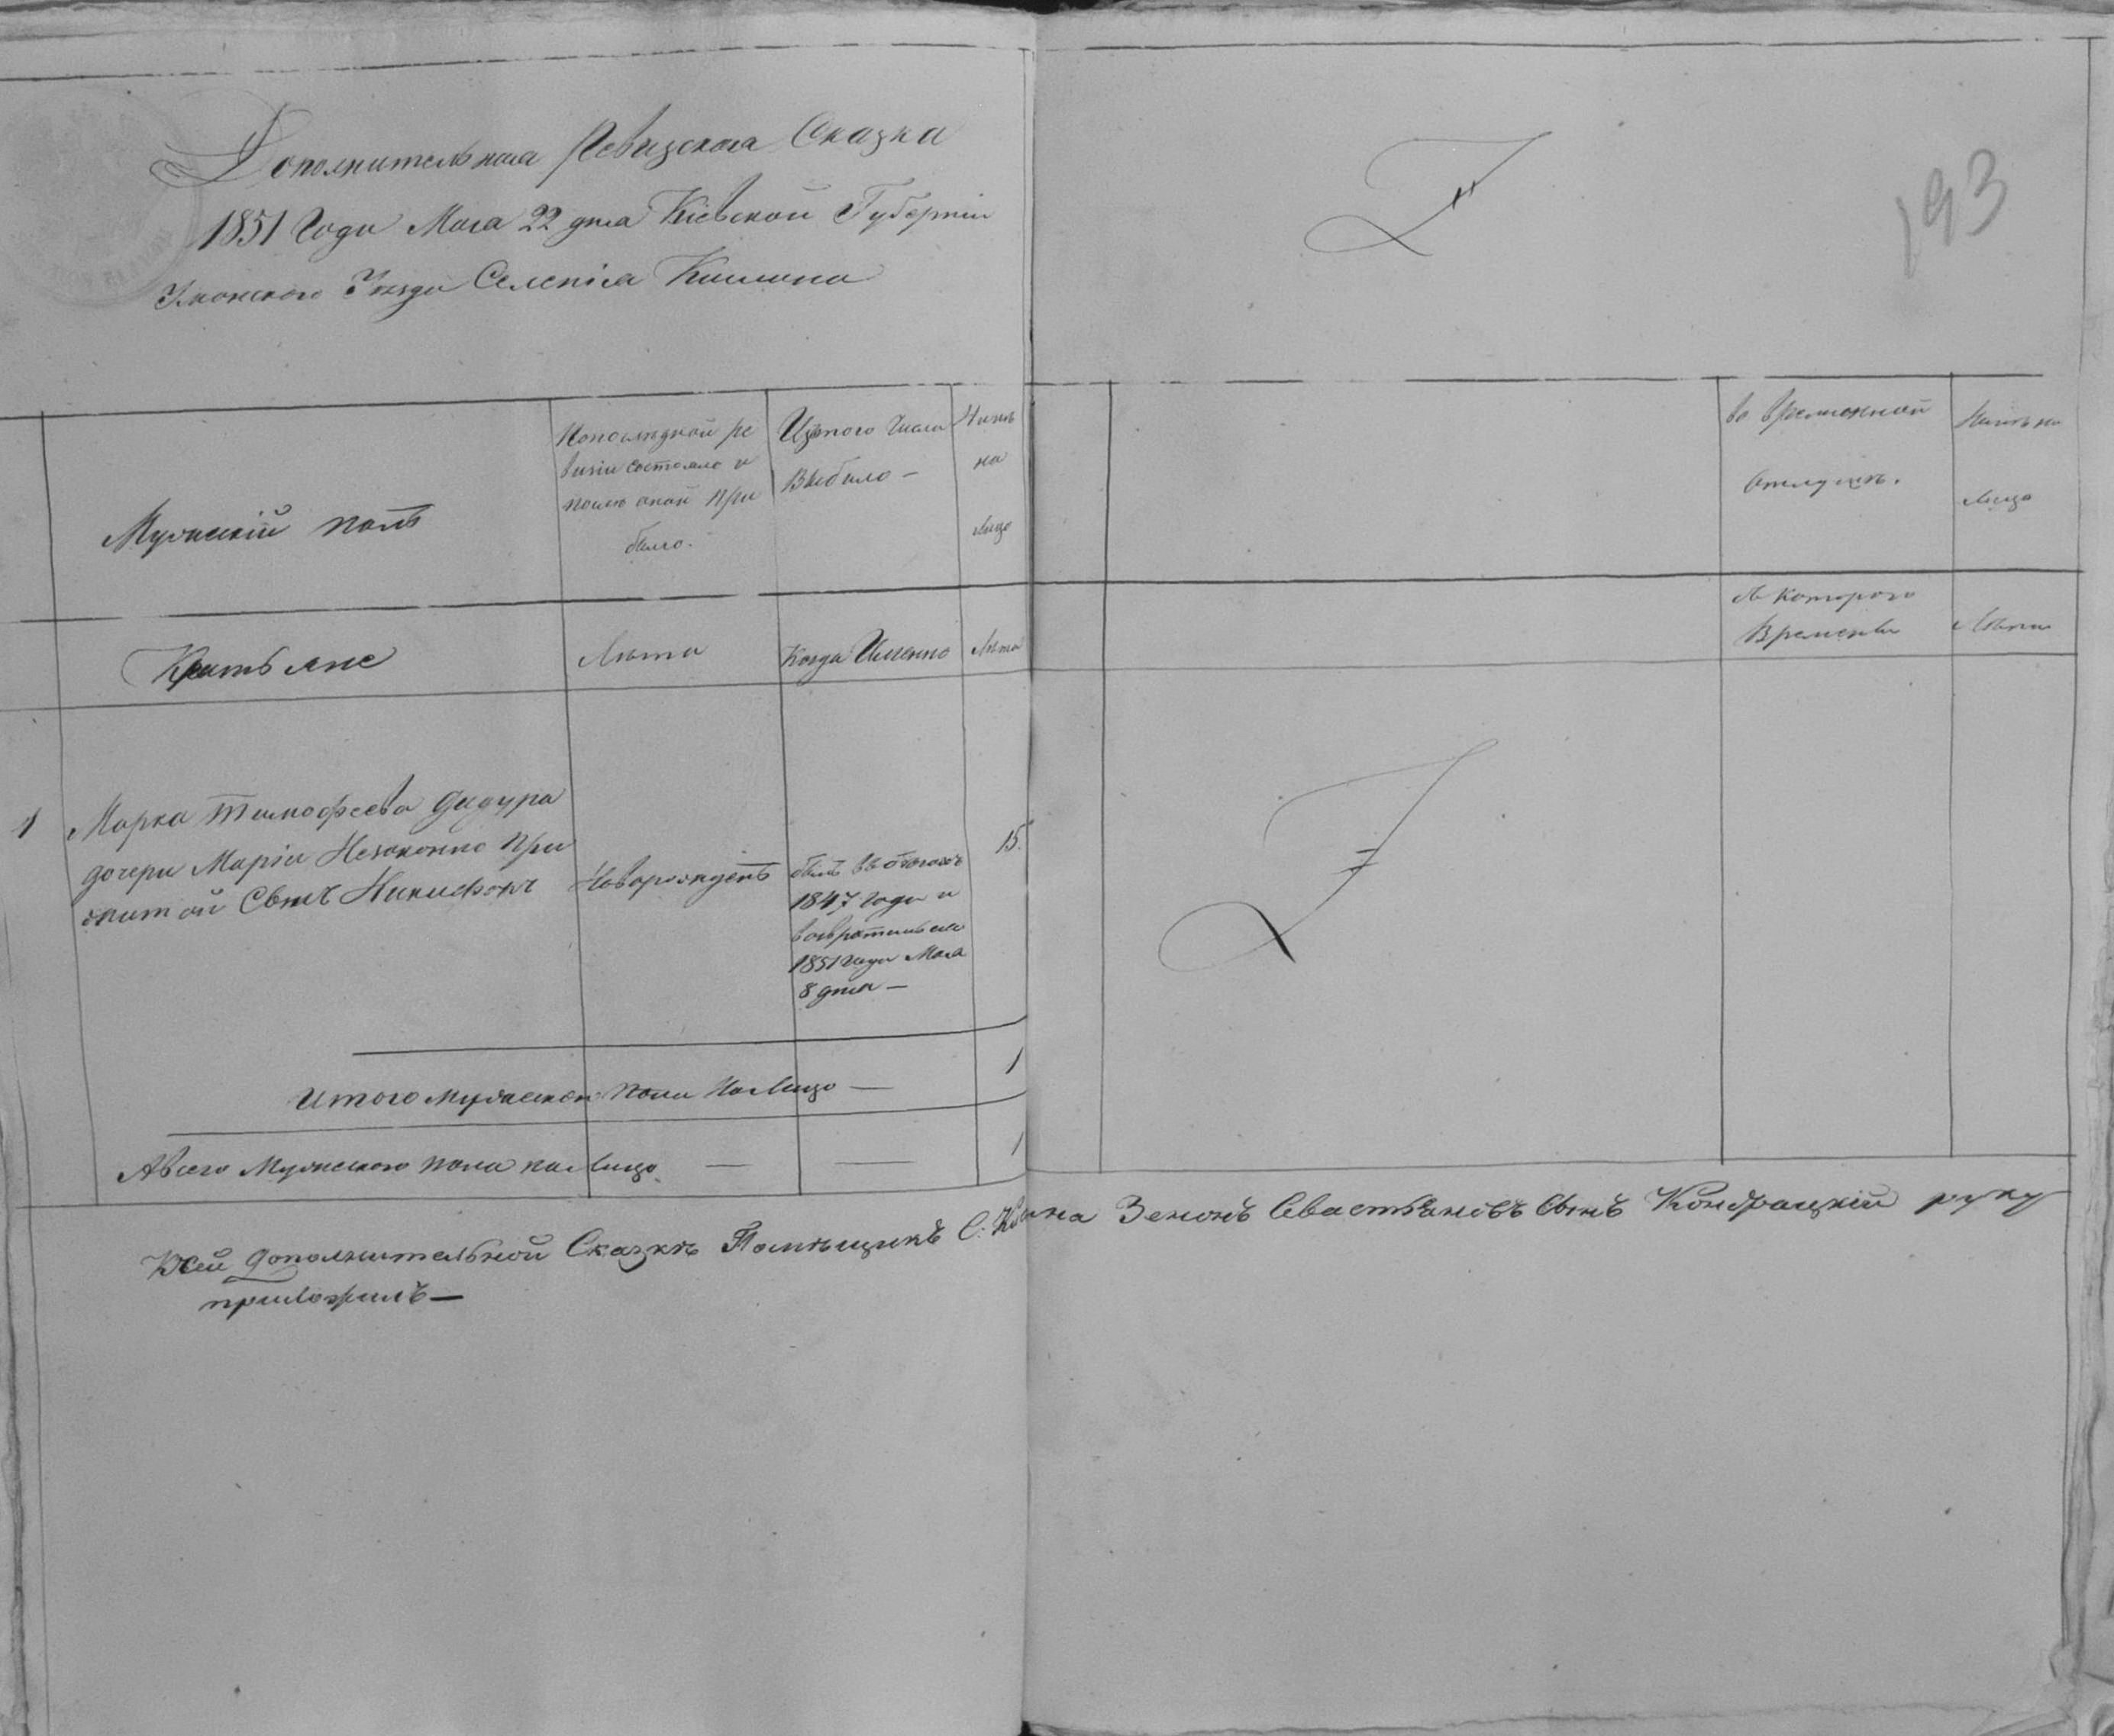 Дополнительная Ревизская Сказка
1851 Года Мая 22 дня Кіевской Губерніи
Уманского Уезда Селенія
193
Мужескій полъ
По последней ре
визіи состояло и
после оной при
было.
Изтого Числа
Выбыло —
Ныне
на
Лицо
во временной
отлучке.
Ныне на
Лицо
Крестьяне
Лета
Когда Именно
Лета
съ которого
Времени
Лета
1
Марка Тимофеева Дидура
дочери Маріи Незаконно При
житой Сынъ Никифоръ
Новорожденъ
былъ въ бегахъ
1847 года и
возвратился
1851 года Мая
8 дня —
15.
Итого мужеска пола На Лицо —
1
А Всего Мужеского пола на Лицо. — —
1
К Сей Дополнительной Сказкѣ Помѣщикъ С. Зенонъ Севастьяновъ Сынъ Кондрацкій руку
приложилъ —